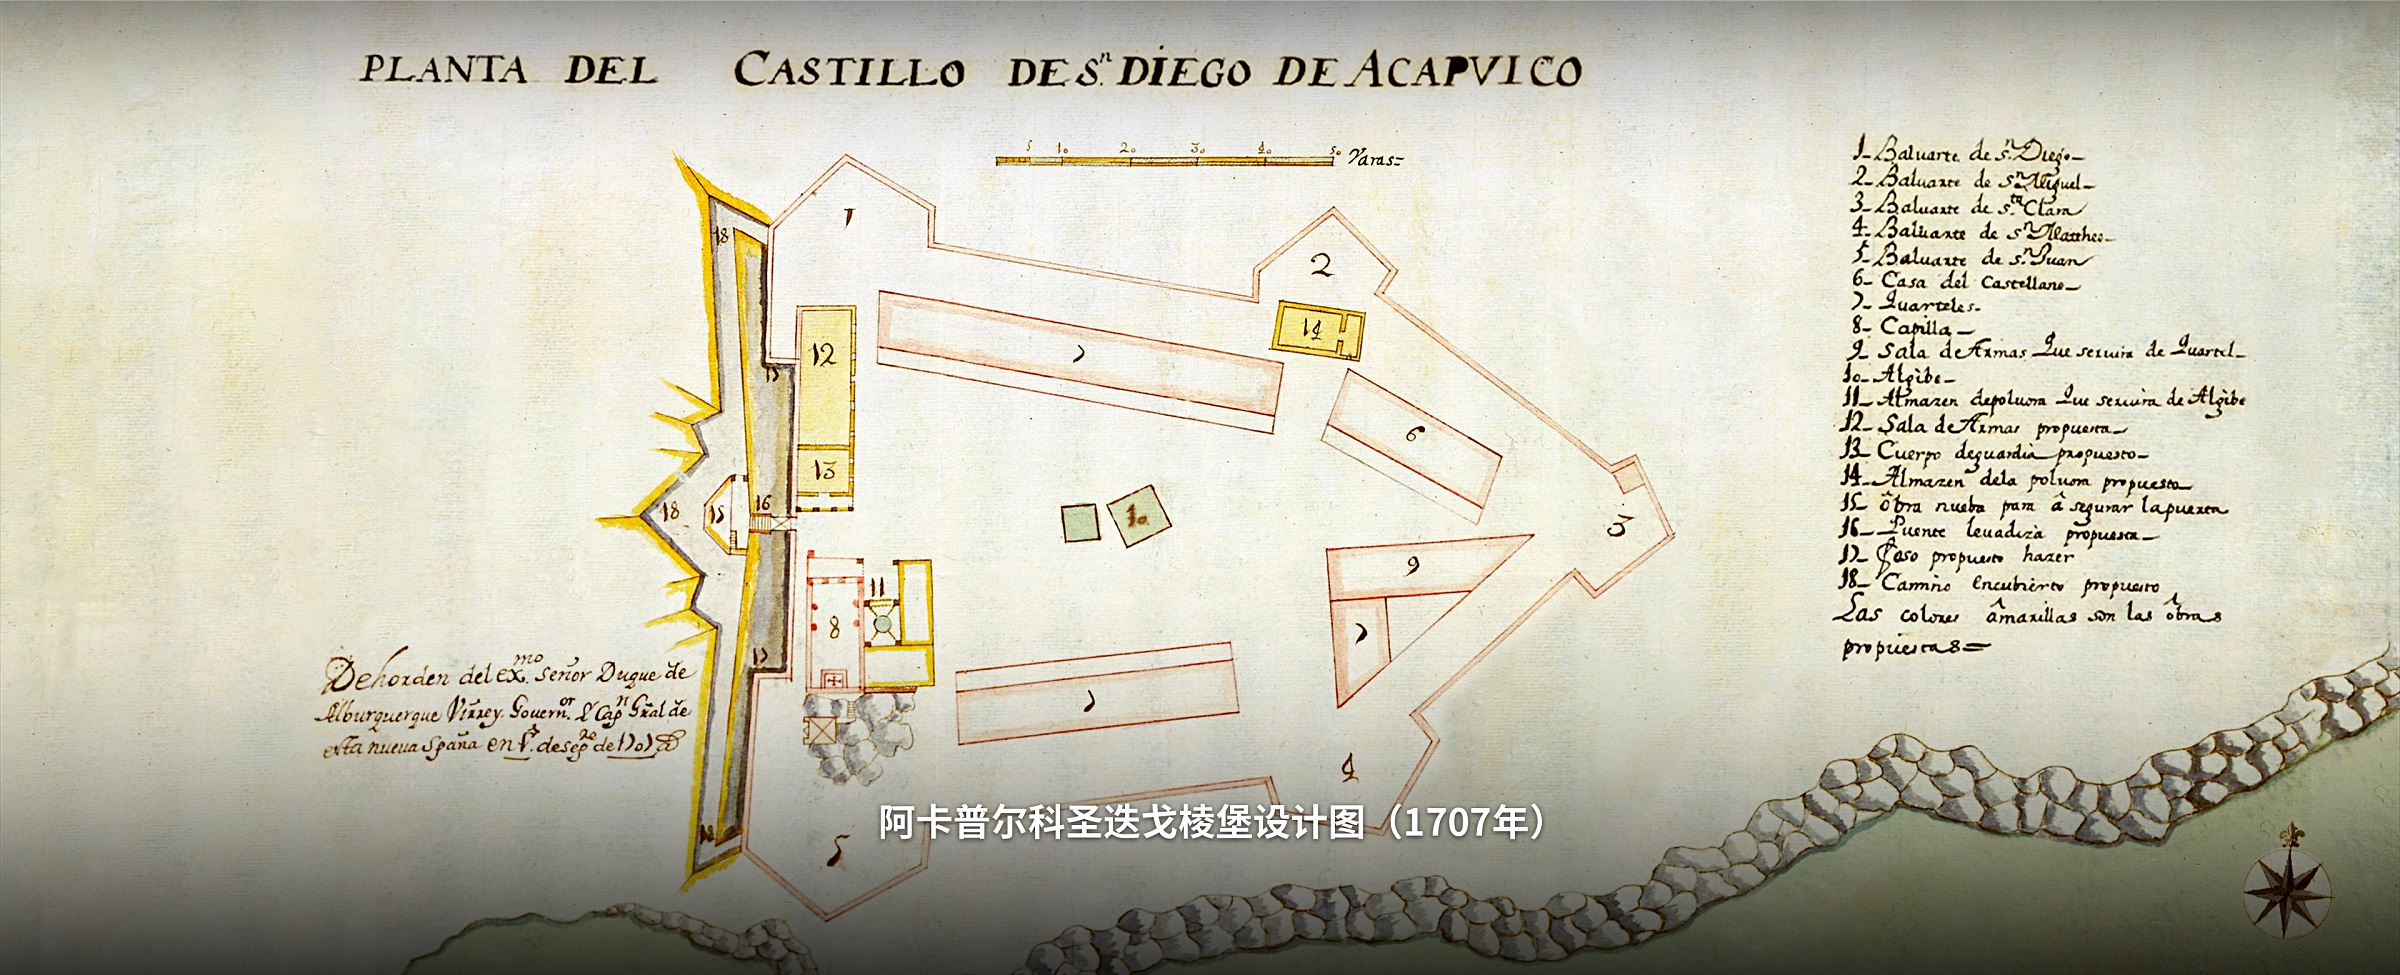 PLANTA DEL CASTILLO DE Sn. DIEGO DE ACAPVICO
5 10 20 30 40 50 Varas=
1 - Baluarte de sn. Diego -
2 - Baluarte de sn. Miguel -
3 - Baluarte de sta. Clara
4 - Baluarte de sn. Matheo -
5 - Baluarte de sn. Juan
6 - Casa del Castellano -
7 - Quarteles -
8 - Capilla -
9 - Sala de Armas Que seruira de Quartel -
10 - Algibe -
11 - Almazen depoluora Que seruira de Algibe
12 - Sala de Armas propuesta -
13 - Cuerpo deguardia propuesto -
14 - Almazen dela poluora propuesta -
15 - obra nueba para asegurar lapuerta
16 - Puente leuadiza propuesta -
17 - foso propuesto hazer
18 - Camino encubierto propuesto
Las colores amarillas son las obras
propuestas =
1
2
18
12
7
14
17
6
13
16
18
15
10
3
9
11
8
7
17
7
4
18
5
Dehorden del exmo. señor Duque de
Alburquerque Virrey. Gouernor. y Capn Gral de
esta nueua spaña en desepre de 1707
阿卡普尔科圣迭戈棱堡设计图（1707年）